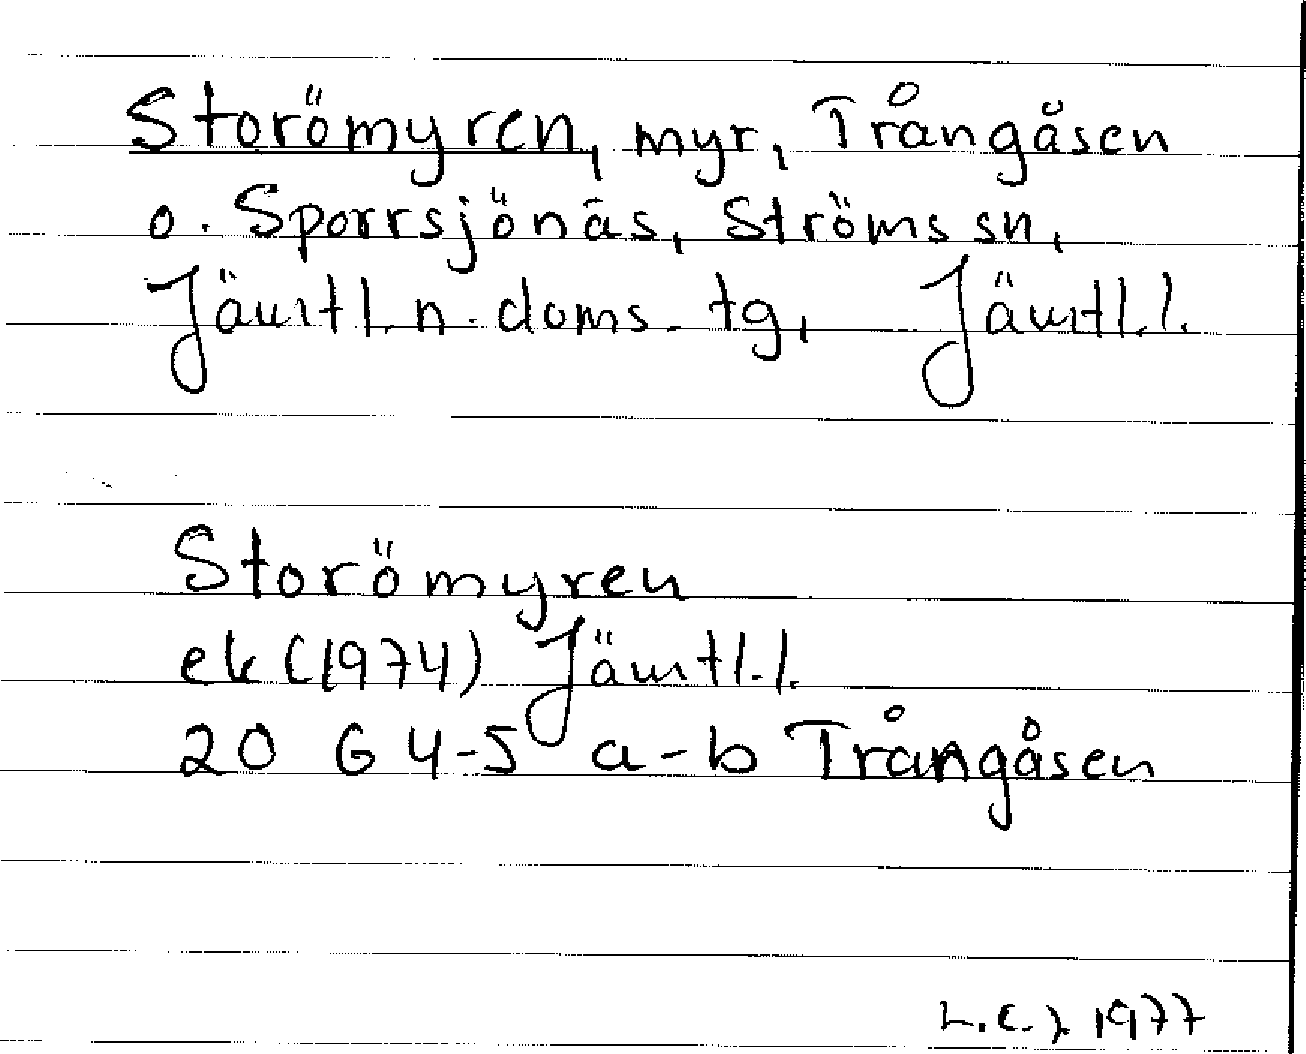 Storömyren, myr, Trångåsen
o. Sporrsjönäs, Ströms sn,
Jämtl. n. doms. tg, Jämtl. l.
Storömyren
ek (1974) Jämtl. l.
20 G 4-5 a-b Trångåsen
1977